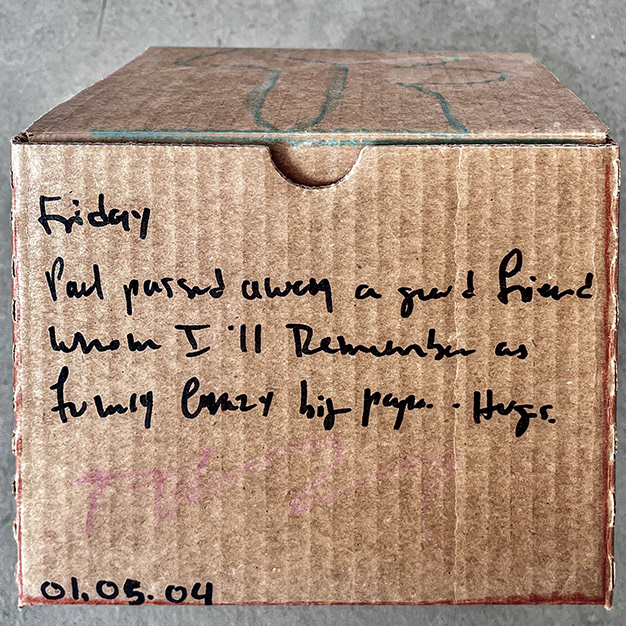 Friday
Paul passed away a good friend
whom I'll Remember as
funny crazy big papa. - Hugs.
01.05.04